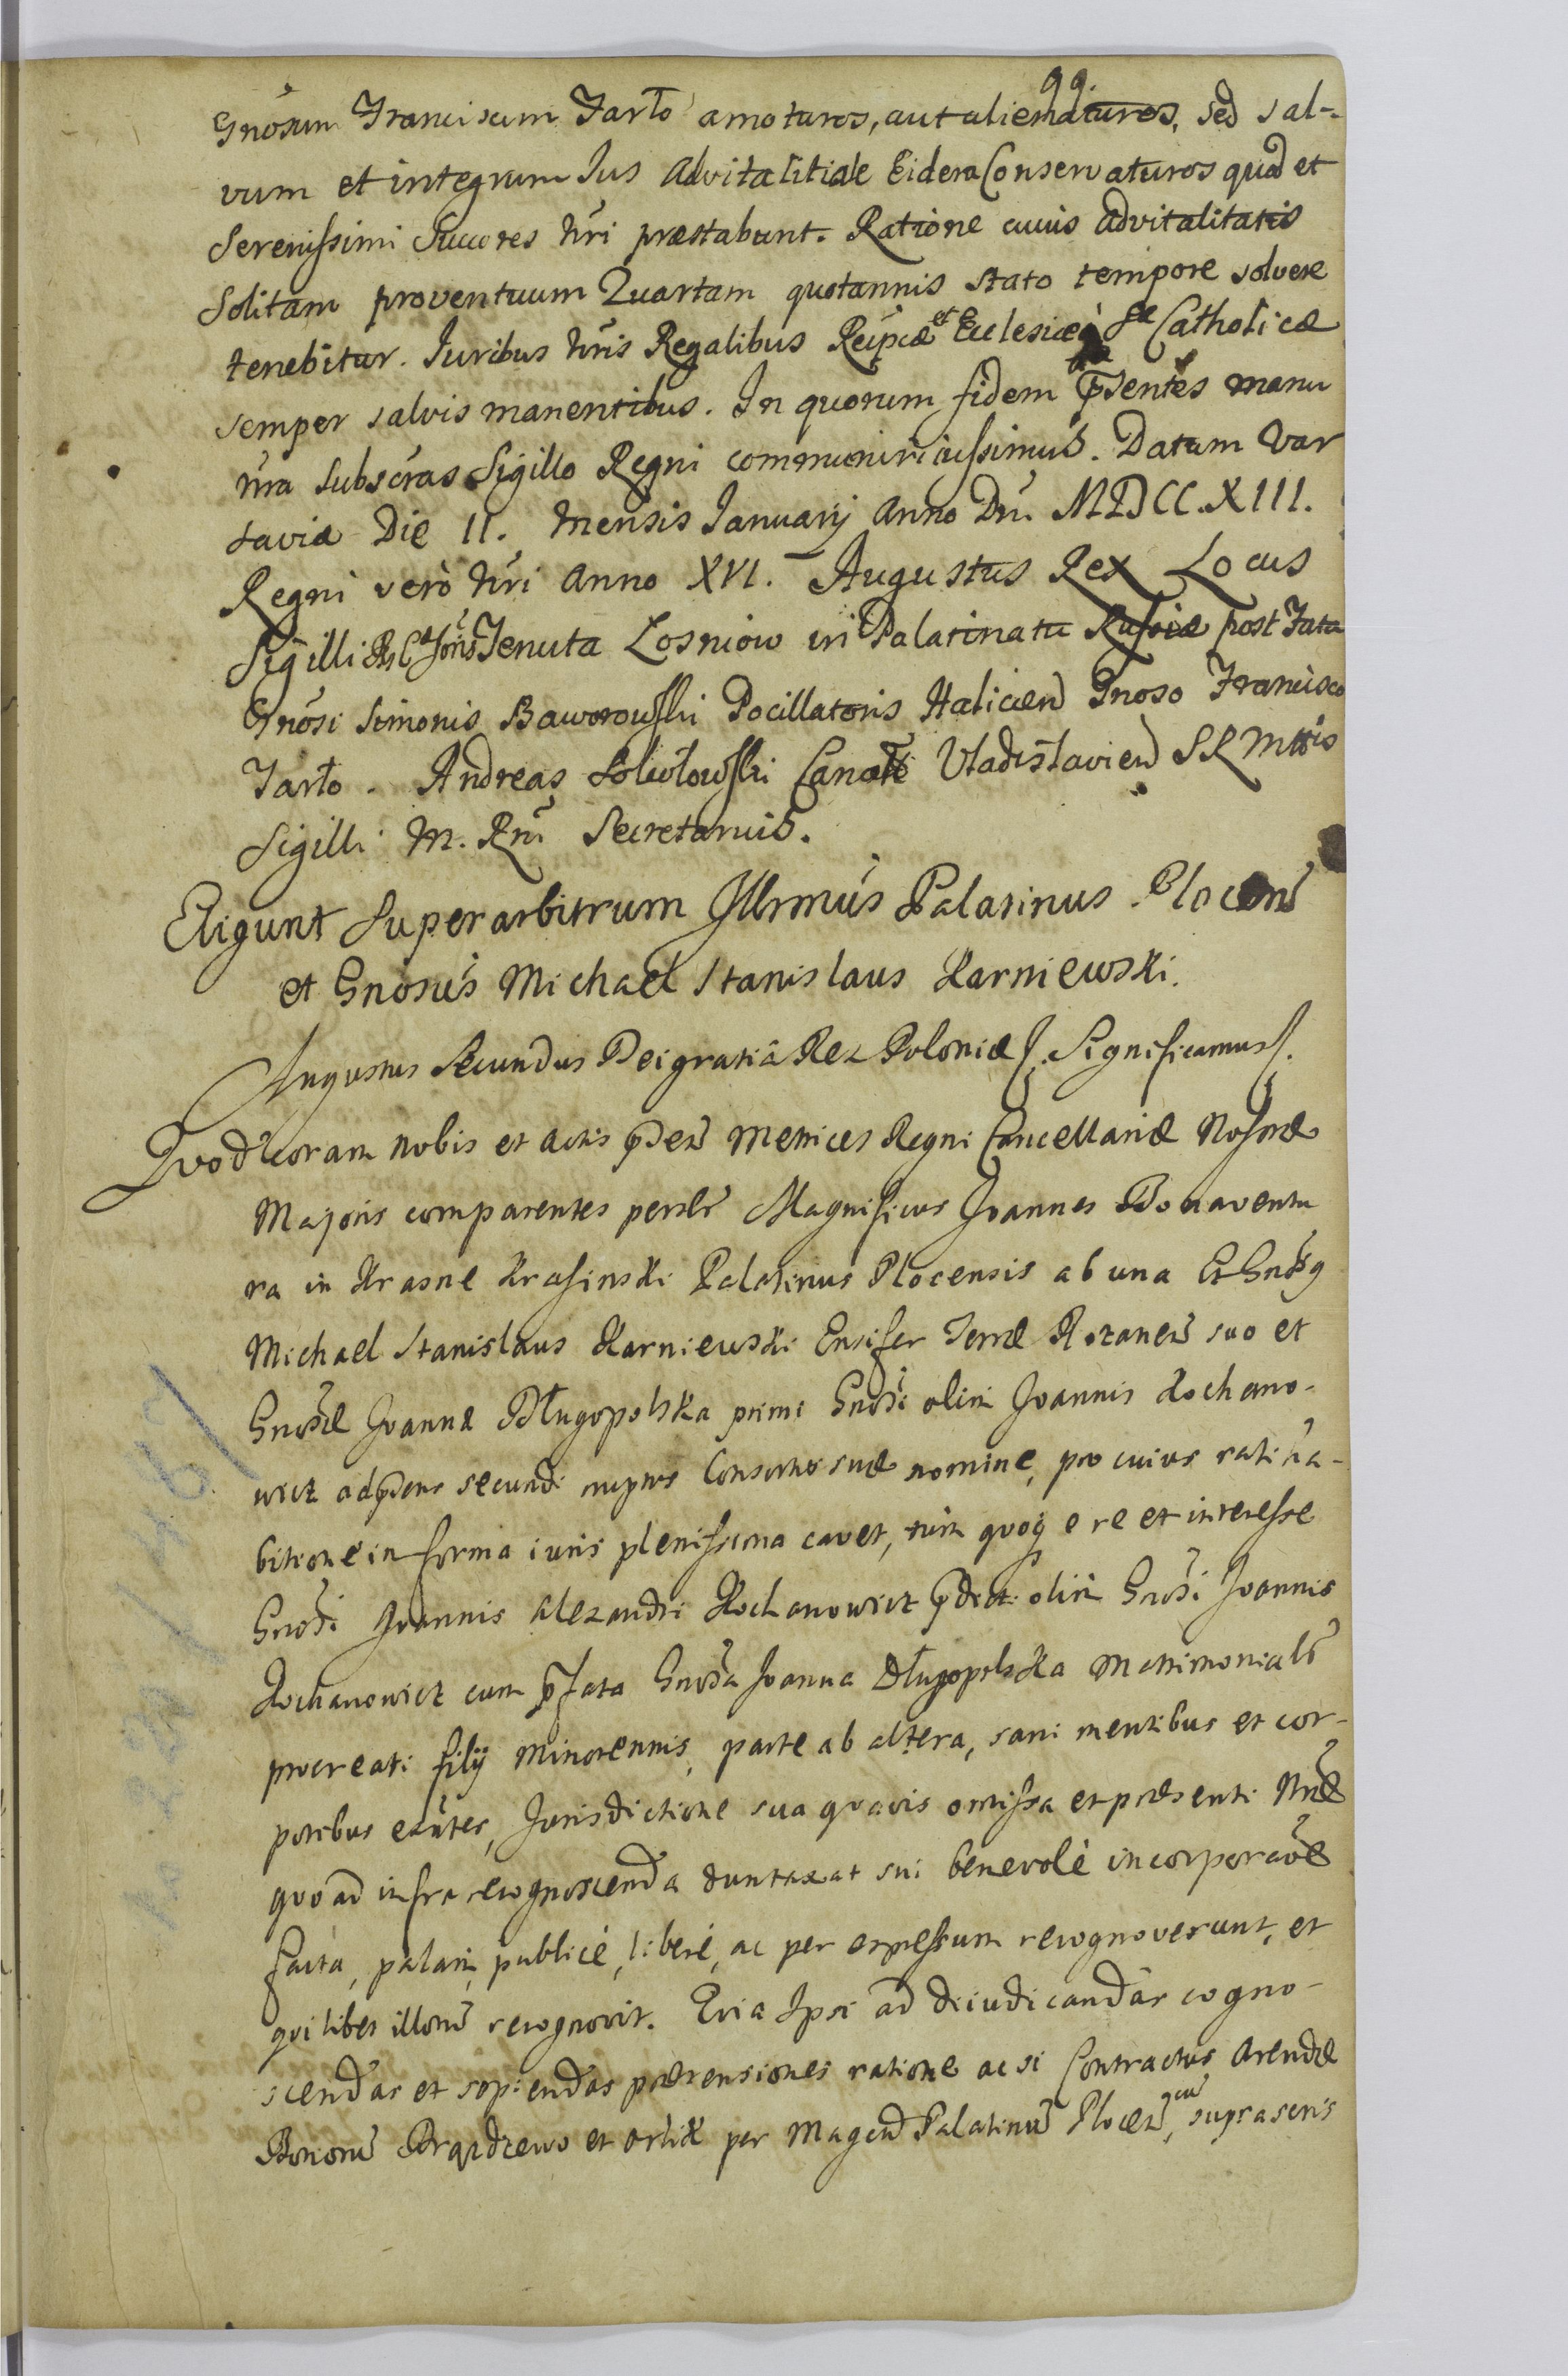 99.
Gnosum Franciscum Tarło amoturos, aut alienaturos, sed sal-
vum et integrum Ius Advitalitiale Eidem Conservaturos quod et
Serenissimi Succores Nri præstabunt. Ratione cuius advitalitatis
Solitam proventuum Quartam quotannis stato tempore solvere
tenebitur. Iuribus Nris Regalibus Reipcæ et Ecclesiæ Catholicæ
semper salvis manentibus. In quorum fidem pñtes manu
nra subscras Sigillo Regni communiri iussimus. Datum Var
saviæ Die 11. Mensis Ianuarij Anno Dni MDCC.XIII.
Regni verò Nri Anno XVI. Augustus Rex Locus
Sigilli Tenuta Losniow in Palatinatu Russiæ post Fata
Gnosi Simonis Baworowski Pocillatoris Halicien Gnoso Francisco
Tarło. Andreas Vladislavien SRMttis
Sigilli M. Rni Secretarius.
Eligunt Superarbitrum Illrmus Palatinus Plocens
et Gnosus Michael Stanislaus Karniewski.
Augustus Secundus Dei gratiâ Rex Poloniæ Significamus
Quod coram nobis et actis pñtibus Metrices Regni Cancellariæ Nostræ
Majoris comparentes persler Magnificus Joannes Bonaventu
ra in Krasne Krasinski Palatinus Plocensis ab una Et Gnosq
Michael Stanislaus Karniewski Ensifer Terræ Rozanen suo et
Gnosæ Joannæ Długopolska primi Gnosi olim Joannis Kochano-
wicz ad pñs secundi nuptus Consortis suæ nomine, pro cuius ratiha-
bitione in forma iuris plenissima cavet, tum quoq e re et interesse
Gnosi Joannis Alexandri Kochanowicz pdicti olim Gnosi Joannis
Kochanowicz cum pfata Gnosa Joanna Długopolska matrimonialr
procreati filij minorennis, parte ab altera, sani mentibus et cor-
poribus exntes, Jurisdictione sua quavis omissa et præsenti Nræ
quoad infra recognoscenda duntaxat sui benevolè incorporaõe
facta, palam, publicè, liberè, ac per expressum recognoverunt, et
quilibet illorũ recognovit. Quia Ipsi ad diiudicandas cogno-
scendas et sopiendas prætensiones ratione Contractus Arendæ
Bonorũ et per Magcũ Palatinũ Plocen, cũ suprascris